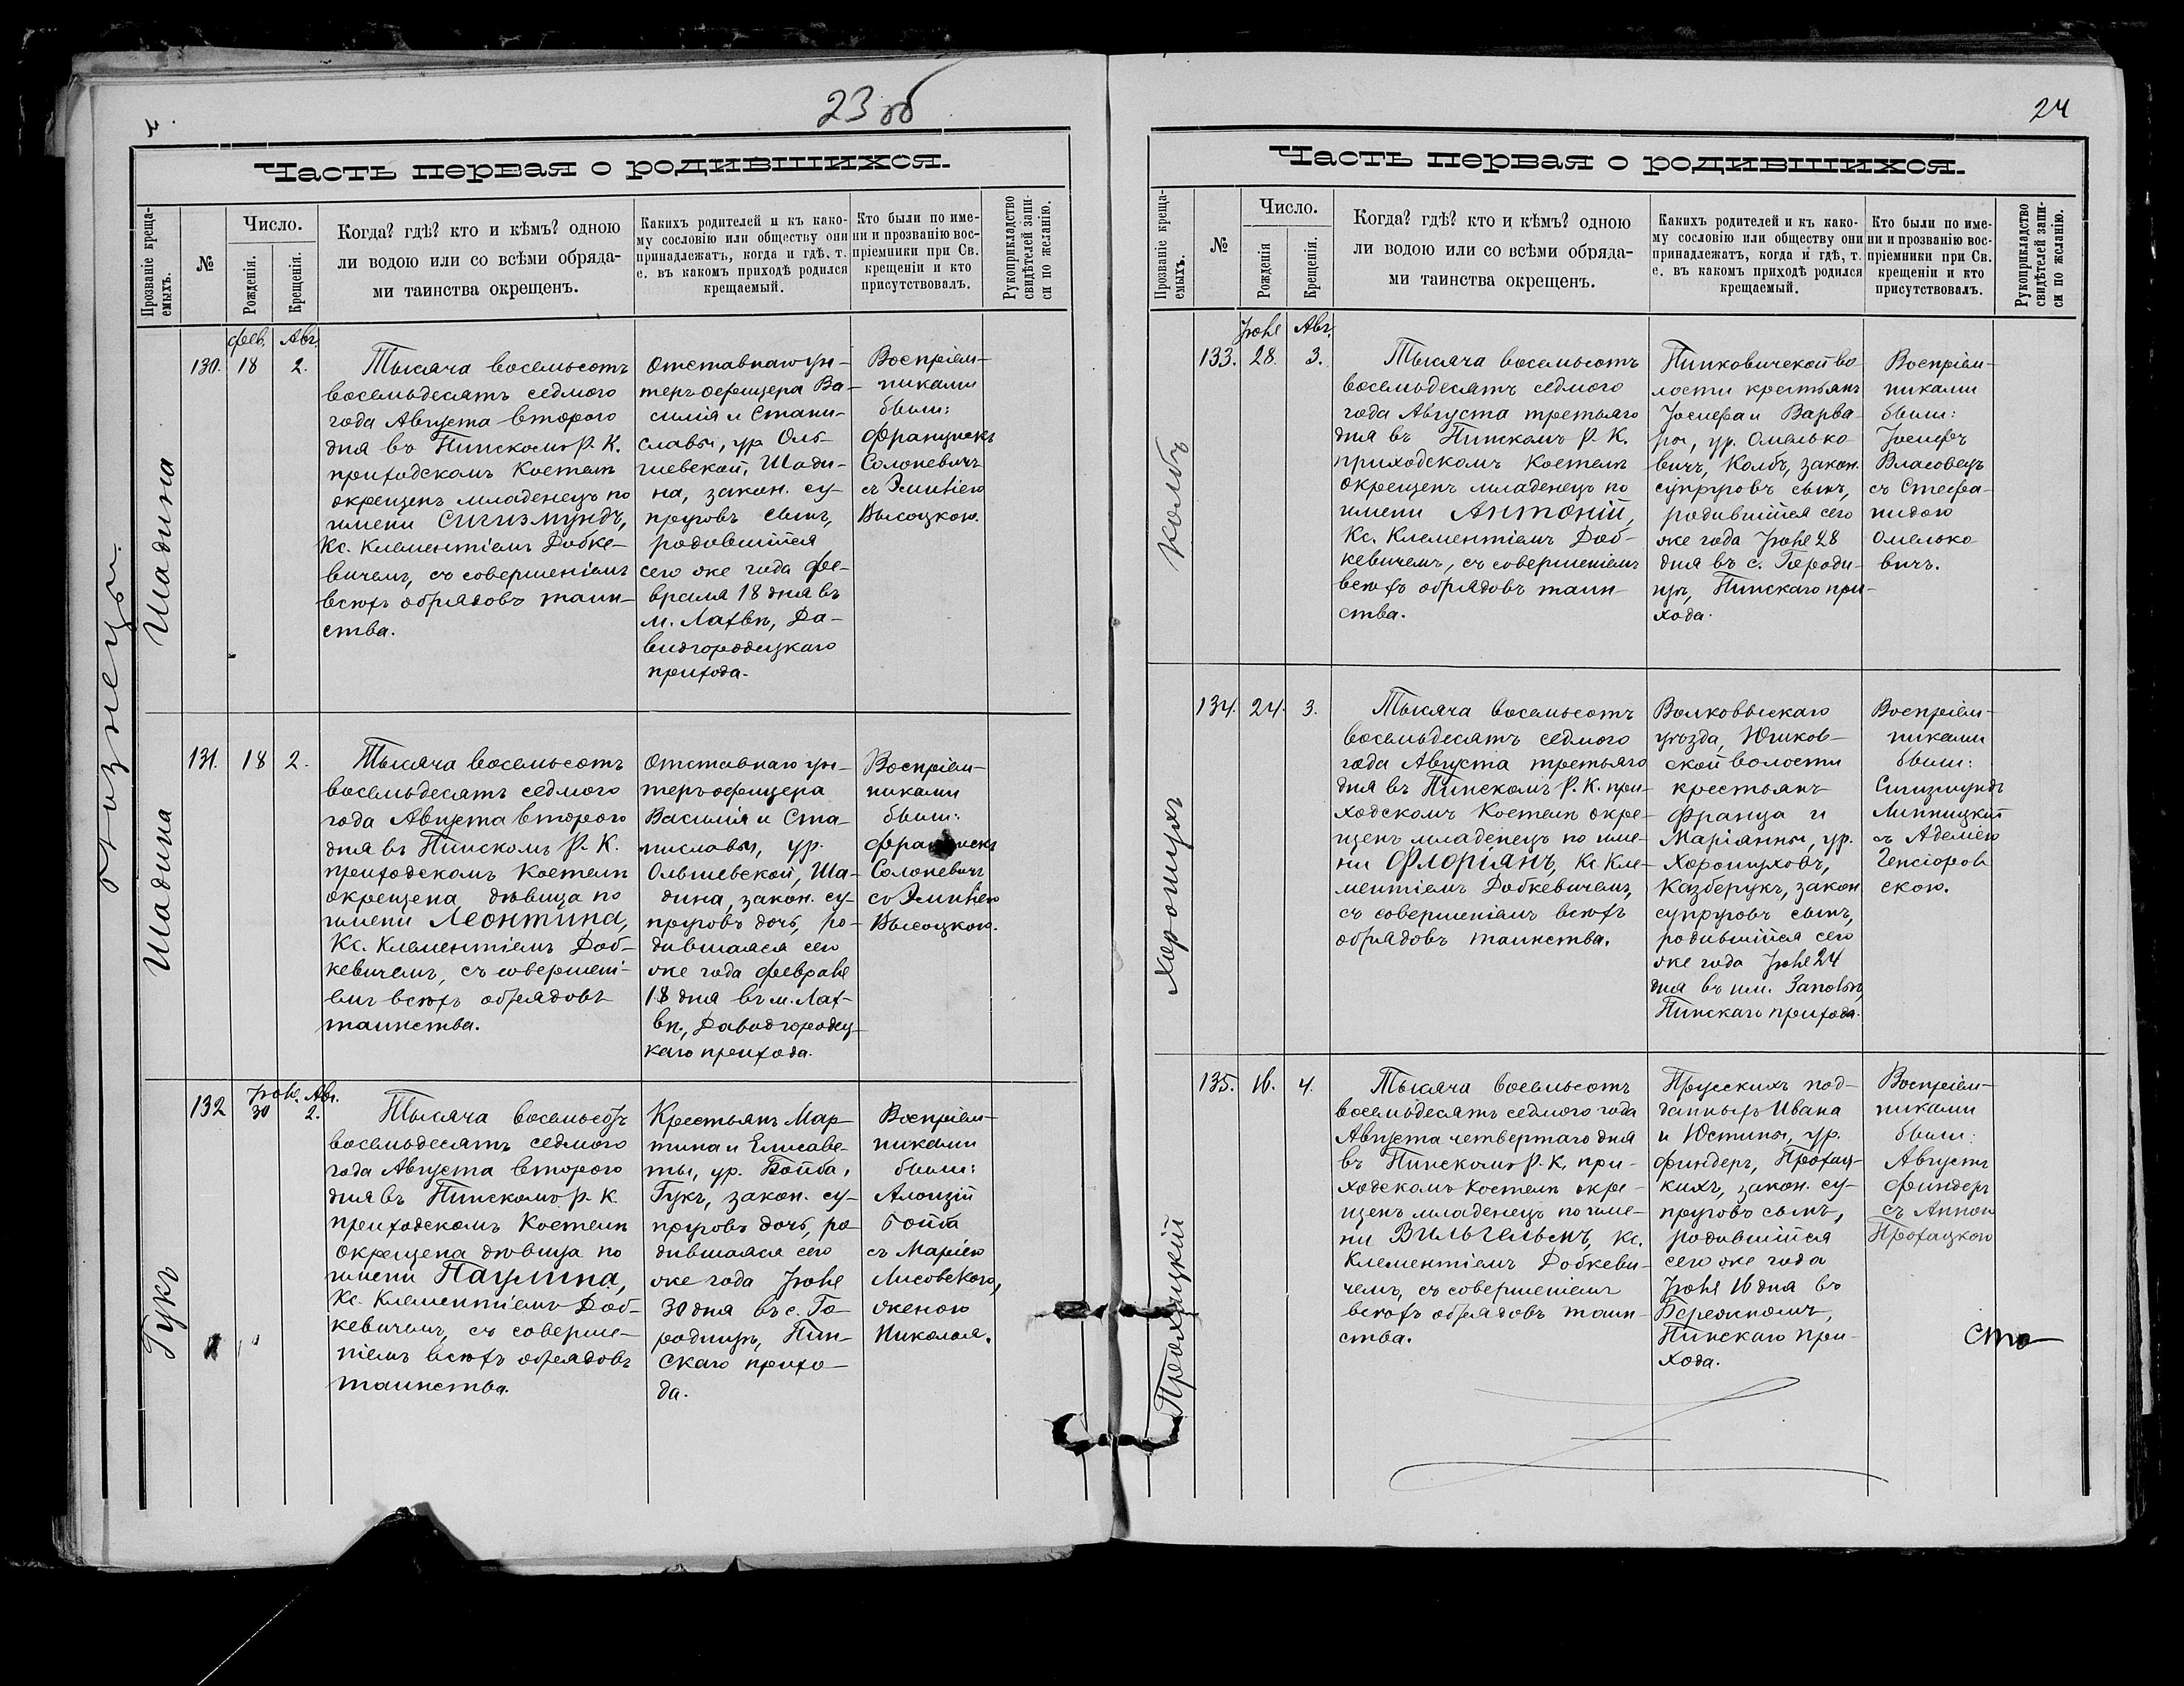 23 об
Часть первая о родившихся.
Прозваніе креща-
емыхъ.
№
Число.
Рожденія.
Крещенія.
Когда? гдѣ? кто и кѣмъ? одною
ли водою или со всѣми обряда-
ми таинства окрещенъ.
Какихъ родителей и къ како-
му сословію или обществу они
принадлежатъ, когда и гдѣ, т.
е. въ какомъ приходѣ родился
крещаемый.
Кто были по име-
ни и прозванію вос-
пріемники при Св.
крещеніи и кто
присутствовалъ.
Рукоприкладство
свидѣтелей запи-
си по желанію.
Близнецы.
Шадина
130.
фев.
18
Авг.
2.
Тысяча восемьсотъ
восемьдесятъ седмого
года Августа второго
дня въ Пинскомъ Р. К.
приходскомъ Костелѣ
окрещенъ младенецъ по
имени Сигизмундъ,
Кс. Клементіемъ Добке-
вичемъ, съ совершеніемъ
всѣхъ обрядовъ таин-
ства.
Отставнаго ун-
теръ офицера Ва-
силія и Стани-
славы, ур. Оль-
шевской, Шади-
на, закон. су-
пруговъ сынъ,
родившійся
сего же года фе-
враля 18 дня въ
м. Лахвѣ, Да-
видгородецкаго
прихода.
Воспріем-
никами
были:
Францискъ
Солоневичъ
съ Эмиліею
Высоцкою.
Шадина
131.
18
2.
Тысяча восемьсотъ
восемьдесятъ седмого
года Августа второго
дня въ Пинскомъ Р. К.
приходскомъ Костелѣ
окрещена дѣвица по
имени Леонтина,
Кс. Клементіемъ Доб-
кевичемъ, съ совершені-
емъ всѣхъ обрядовъ
таинства.
Отставнаго ун-
теръ офицера
Василія и Ста-
ниславы, ур.
Ольшевской, Ша-
дина, закон. су-
пруговъ дочь, ро-
дившаяся сего
же года февраля
18 дня въ м. Лах-
вѣ, Давидгородец-
каго прихода.
Воспріем-
никами
были:
Францискъ
Солоневичъ
съ Эмиліею
Высоцкою.
Гукъ
132
Іюня.
30
Авг.
2.
Тысяча восемьсотъ
восемьдесятъ седмого
года Августа второго
дня въ Пинскомъ Р. К
приходскомъ Костелѣ
окрещена дѣвица по
имени Паулина,
Кс. Клементіемъ Доб-
кевичемъ, съ соверше-
ніемъ всѣхъ обрядовъ
таинства.
Крестьянъ Мар-
тина и Елисаве-
ты, ур. Бойба,
Гукъ, закон. су-
пруговъ дочь, ро-
дившаяся сего
же года Іюня
30 дня въ с. Го-
родищѣ, Пин-
скаго прихо-
да.
Воспріем-
никами
были:
Алоизій
Бойба
съ Маріею
Лисовскою,
женою
Николая.
24
Часть первая о родившихся.
Прозваніе креща-
емыхъ.
№
Число.
Рожденія
Крещенія.
Когда? гдѣ? кто и кѣмъ? одною
ли водою или со всѣми обряда-
ми таинства окрещенъ.
Какихъ родителей и къ како-
му сословію или обществу они
принадлежатъ, когда и гдѣ, т.
е. въ какомъ приходѣ родился
крещаемый.
Кто были по име-
ни и прозванію вос-
пріемники при Св.
крещеніи и кто
присутствовалъ.
Рукоприкладство
свидѣтелей запи-
си по желанію.
Колбъ
133.
Іюня
28.
Авг.
3.
Тысяча восемьсотъ
восемьдесятъ седмого
года Августа третьяго
дня въ Пинскомъ Р. К.
приходскомъ Костелѣ
окрещенъ младенецъ по
имени Антоній,
Кс. Клементіемъ Доб-
кевичемъ, съ совершеніемъ
всѣхъ обрядовъ таин-
ства.
Пинковичской во
лости крестьянъ
Іосифа и Варва-
ры, ур. Омелько
вичъ, Колбъ, закон.
супруговъ сынъ,
родившійся сего
же года Іюня 28
дня въ с. Городи-
щѣ, Пинскаго при-
хода.
Воспріем-
никами
были:
Іосифъ
Власовецъ
съ Стефа-
нидою
Омелько
вичъ.
Хоронщухъ
134.
24.
3.
Тысяча восемьсотъ
восемьдесятъ седмого
года Августа третьяго
дня въ Пинскомъ Р. К. при-
ходскомъ Костелѣ окре-
щенъ младенецъ по име-
ни Флоріанъ, Кс. Кле-
ментіемъ Добкевичемъ,
съ совершеніемъ всѣхъ
обрядовъ таинства.
Волковыскаго
уѣзда, Юшков-
ской волости
крестьянъ
Франца и
Маріанны, ур.
Казберукъ, закон
супруговъ сынъ,
родившійся сего
же года Іюня 24
дня въ им.
Пинскаго прихода.
Воспріем-
никами
были:
Сигизмундъ
Липницкій
съ Аделіею
скою.
Прохацкій
135.
16.
4.
Тысяча восемьсотъ
восемьдесятъ седмого года
Августа четвертаго дня
въ Пинскомъ Р. К. при-
ходскомъ Костелѣ окре-
щенъ младенецъ по име-
ни Вильгельмъ, Кс.
Клементіемъ Добкеви-
чемъ, съ совершеніемъ
всѣхъ обрядовъ таин-
ства.
Прусскихъ под-
данныхъ Ивана
и Юстины, ур.
Финдеръ, Прохац-
кихъ, закон. су-
пруговъ сынъ,
родившійся
сего же года
Іюня 16 дня въ
Пинскаго при-
хода.
Воспріем-
никами
были:
Августъ
Финдеръ
съ Анною
Прохацкою
Сто